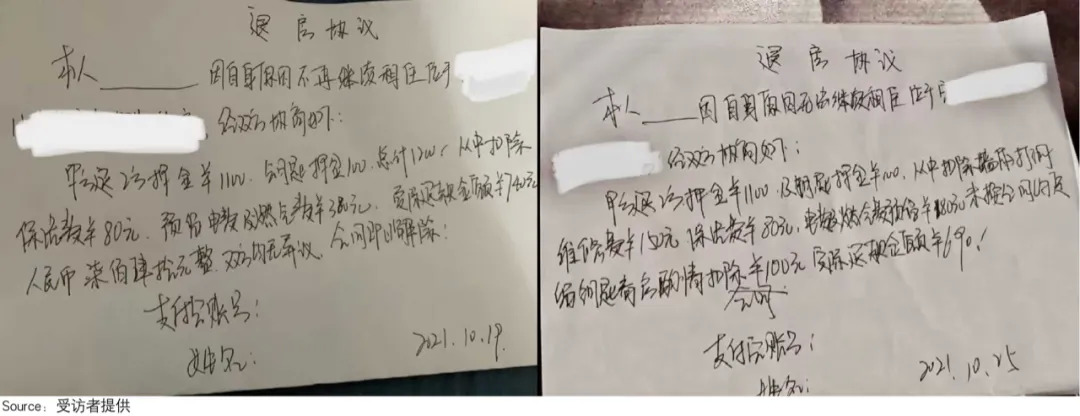 退房协议
本人 因自身原因不再继续租住位于
，经双方协商如下：
甲方退乙方押金¥1100，钥匙押金100，总计1200，从中扣除
保洁费¥80元，预留电费及燃气费¥380元，实际退款金额¥740元
人民币柒佰肆拾元整，双方均无异议，合同即日解除！
支付宝账号：
姓名：
2021.10.19
退房协议
本人 因自身原因无法继续租住位于
经双方协商如下：
甲方退乙方押金¥1100及钥匙¥100，从中扣除
维修费¥150元 保洁费¥80元，电费燃气费预留¥180元未按合同约定
¥100元 实际退款金额¥690！
支付宝账号：
姓名：
2021.10.25
Source：受访者提供